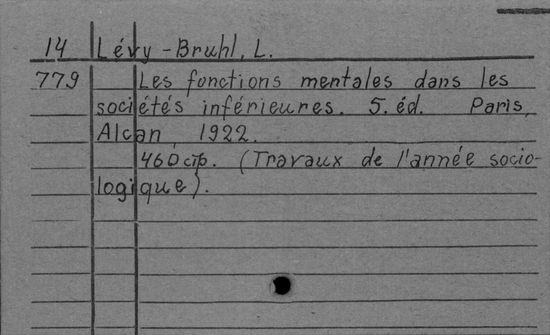 14 Lévy-Bruhl, L.
779 Les fonctions mentales dans les
sociétés inférieures. 5. éd. Paris,
Alcan, 1922.
460 стр. (Travaux de l'année socio-
logique).